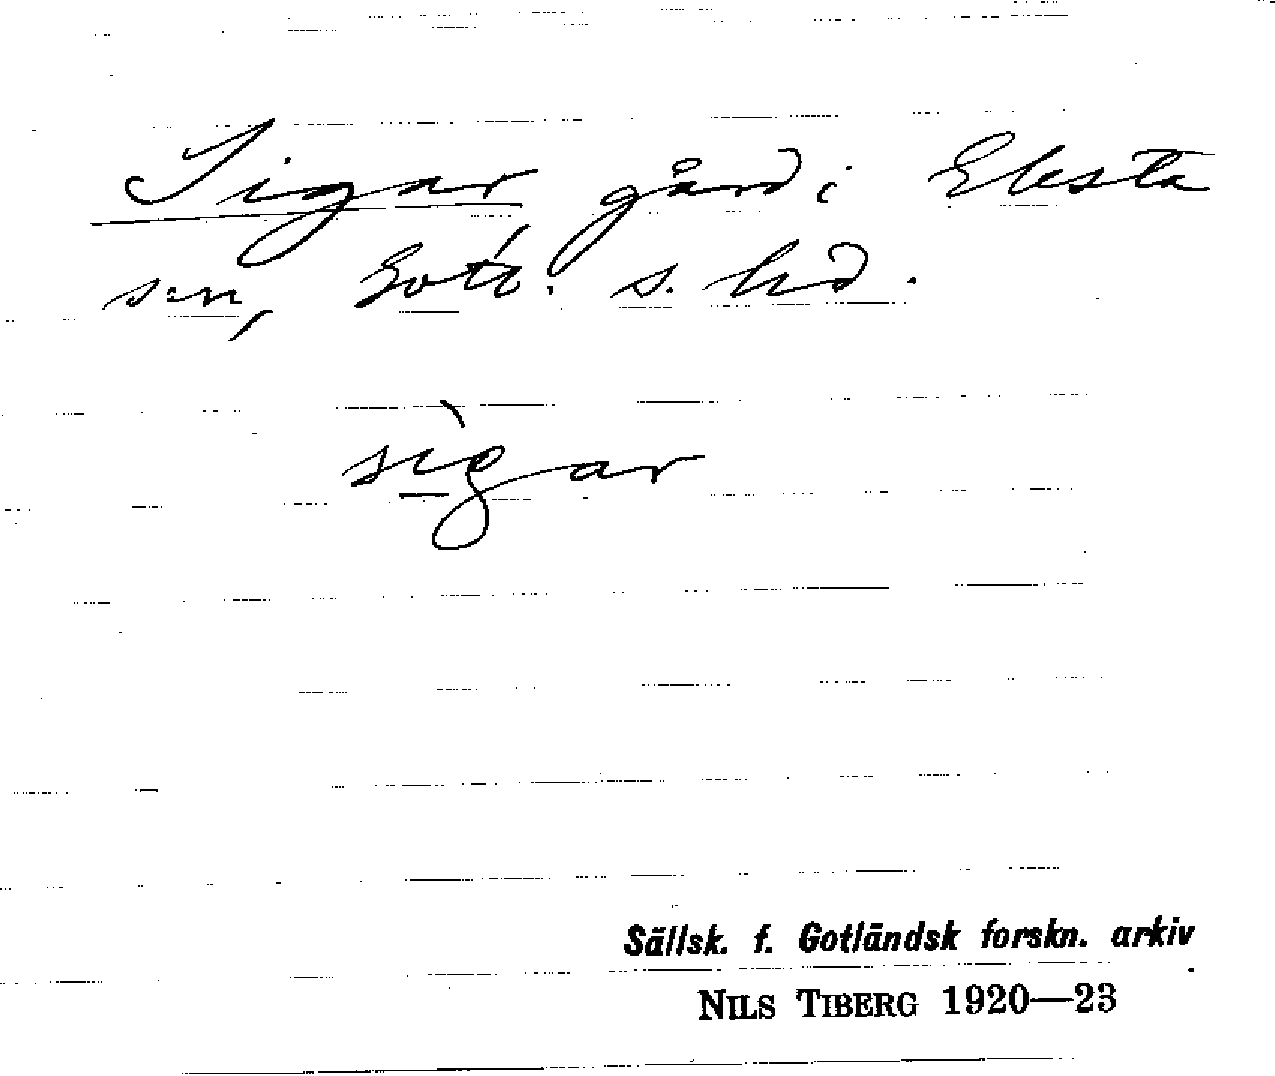 Sigar gård i Eksta
s:n, Gotl. s. hd.
sìgar
Sällsk. f. Gotländsk forskn. arkiv
NILS TIBERG 1920—23